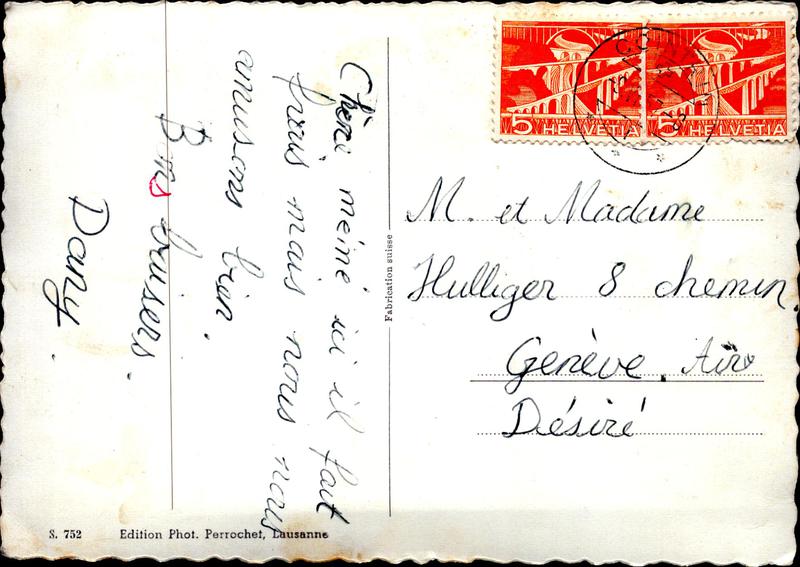 Chéri méiné ici il fait
frais mais nous nous
amusons bien.
Bons baisers.
Dany.
5 HELVETIA
5 HELVETIA
M. et Madame
Hulliger 8 chemin
Genève. Aïre
Désiré
Fabrication suisse
S. 752 Edition Phot. Perrochet, Lausanne